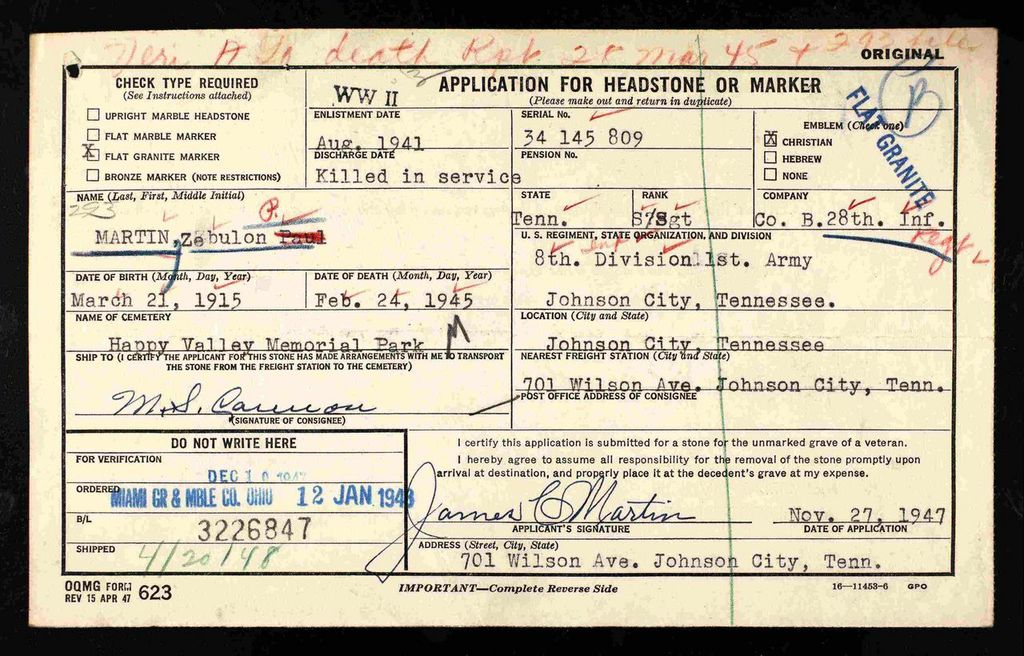 death Rpt 28 Mar 45 +
ORIGINAL
CHECK TYPE REQUIRED
(See Instructions attached)
UPRIGHT MARBLE HEADSTONE
FLAT MARBLE MARKER
X FLAT GRANITE MARKER
BRONZE MARKER (NOTE RESTRICTIONS)
WW II
APPLICATION FOR HEADSTONE OR MARKER
(Please make out and return in duplicate)
ENLISTMENT DATE
Aug. 1941
DISCHARGE DATE
Killed in service
SERIAL No.
34 145 809
PENSION No.
EMBLEM (Check one)
X CHRISTIAN
HEBREW
NONE
B
FLAT GRANITE
NAME (Last, First, Middle Initial)
293
P.
MARTIN, Zebulon Paul
STATE
Tenn.
RANK
S/Sgt
COMPANY
Co. B. 28th. Inf.
Regt
U. S. REGIMENT, STATE ORGANIZATION, AND DIVISION
Inf
8th. Division 1St. Army
DATE OF BIRTH (Month, Day, Year)
March 21, 1915
DATE OF DEATH (Month, Day, Year)
Feb. 24, 1945
Johnson City, Tennessee.
NAME OF CEMETERY
Happy Valley Memorial Park
M
LOCATION (City and State)
Johnson City, Tennessee
SHIP TO (I CERTIFY THE APPLICANT FOR THIS STONE HAS MADE ARRANGEMENTS WITH ME TO TRANSPORT
THE STONE FROM THE FREIGHT STATION TO THE CEMETERY)
NEAREST FREIGHT STATION (City and State)
701 Wilson Ave. Johnson City, Tenn.
POST OFFICE ADDRESS OF CONSIGNEE
M. S. Cannon
(SIGNATURE OF CONSIGNEE)
DO NOT WRITE HERE
FOR VERIFICATION
DEC 10 1947
ORDERED
MIAMI GR & MBLE CO. OHIO 12 JAN 1948
B/L
3226847
SHIPPED
4/20/48
I certify this application is submitted for a stone for the unmarked grave of a veteran.
I hereby agree to assume all responsibility for the removal of the stone promptly upon
arrival at destination, and properly place it at the decedent's grave at my expense.
James C Martin
APPLICANT'S SIGNATURE
Nov. 27, 1947
DATE OF APPLICATION
ADDRESS (Street, City, State)
701 Wilson Ave. Johnson City, Tenn.
OQMG FORM 623
REV 15 APR 47
IMPORTANT—Complete Reverse Side
16—11453-6 GPO